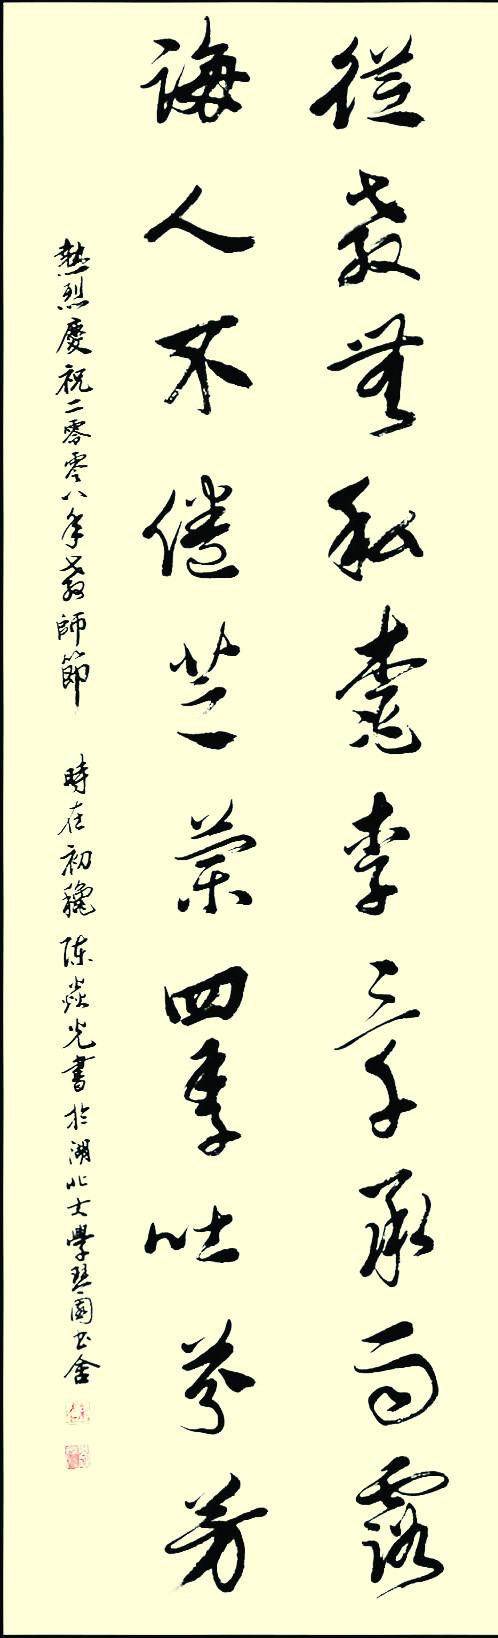 從教無私桃李三千承雨露
誨人不倦芝蘭四季吐芬芳
熱烈慶祝二零零八年教師節 時在初穐 陈焱光書於湖北大學琴園書舍